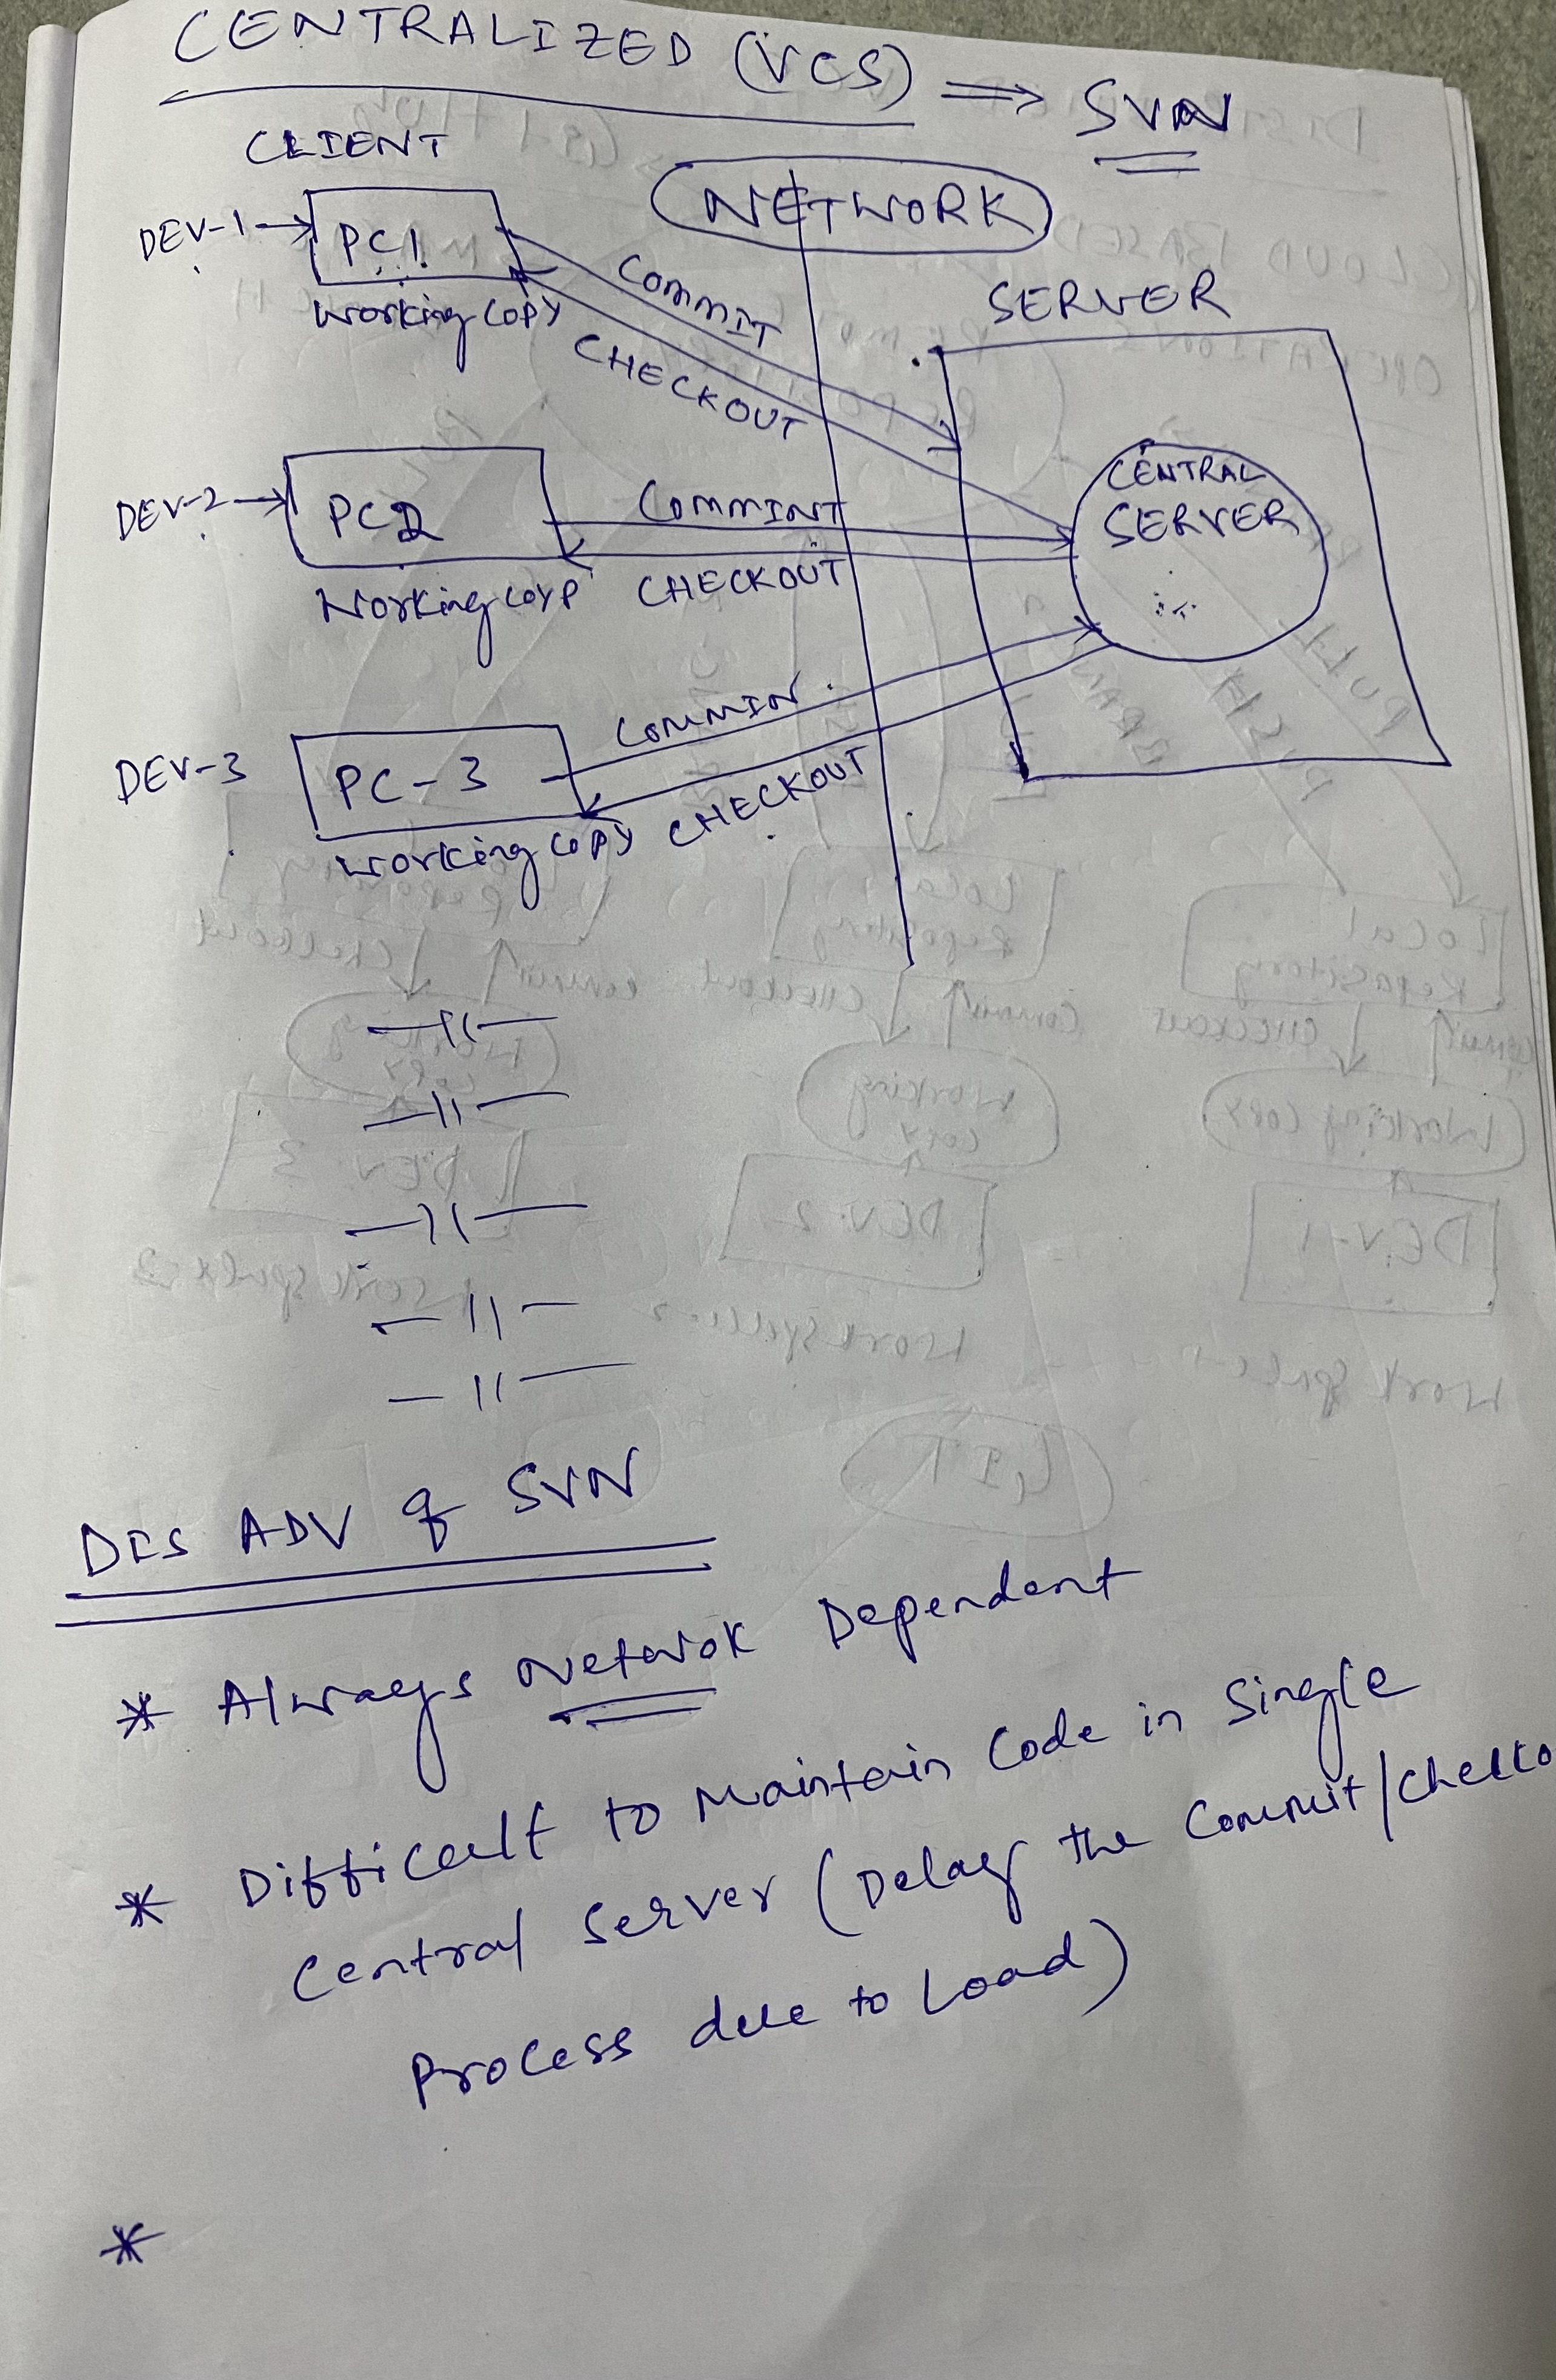 CENTRALIZED (VCS) ⇒ SVN
CLIENT
NETWORK
DEV-1 → PC1
COMMIT
Working COPY
CHECKOUT
SERVER
CENTRAL
SERVER
DEV-2 → PC2
COMMINT
Working COYP
CHECKOUT
DEV-3 PC-3
COMMIN
Working COPY
CHECKOUT
—11—
—11—
—11—
—11—
—11—
DIS ADV of SVN
* Always Netwok Dependent
* Difficult to Maintain Code in Single
Central Server (Delay the Commit/Checko
Process due to Load)
*